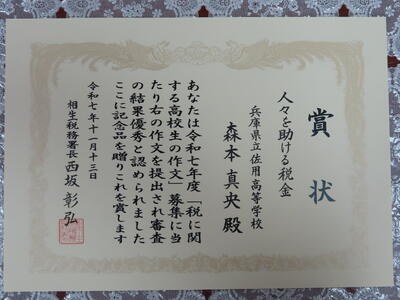 賞状
人々を助ける税金
兵庫県立佐用高等学校
森本真央殿
あなたは令和七年度「税に関
する高校生の作文」募集に当
たり右の作文を提出され審査
の結果優秀と認められました
ここに記念品を贈りこれを賞します
令和七年十一月十三日
相生税務署長西坂彰弘